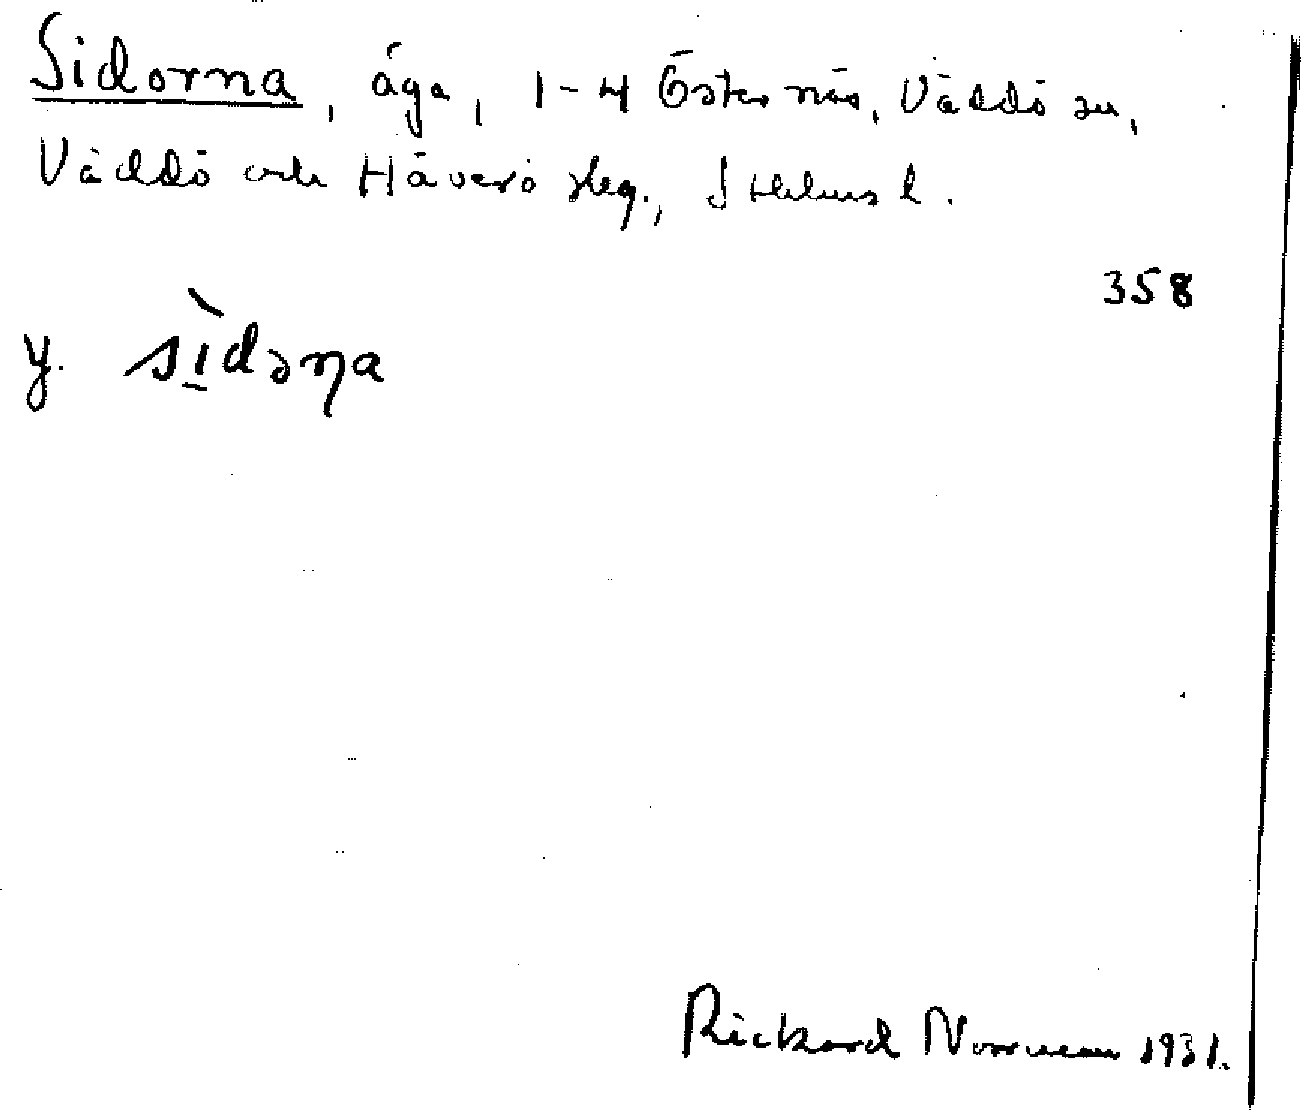 Sidorna, äga, 1-4 Östernäs, Väddö sn,
Väddö och Häverö skeg., Sthlms l.
358
y. sìdəṇa
Rickard Norrman 1931.